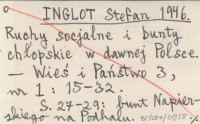 INGLOT Stefan 1946.
Ruchy socjalne i bunty
chłopskie w dawnej Polsce.
— Wieś i Państwo 3,
nr 1 : 15-32.
S. 27-29: bunt Napier-
skiego na Podhalu.